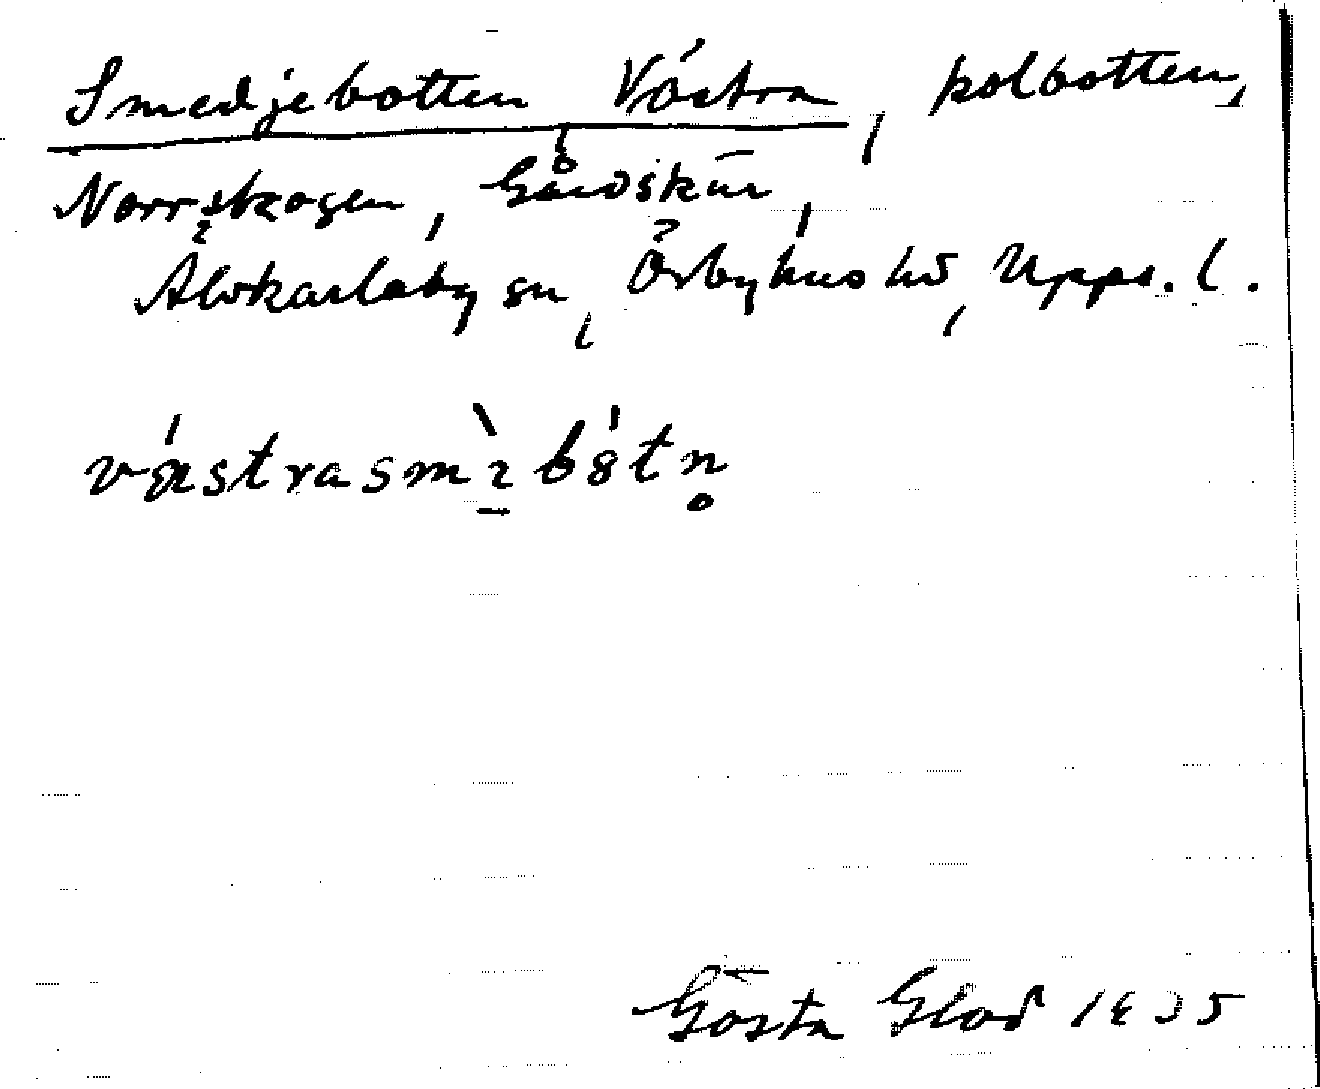 Smedjebotten Västra, kolbotten,
Norrskogen, Gårdskär,
Älvkarleby sn, Örbyhus hd, Upps. l.
västrasmìbótn̥
Gösta Glad 1935